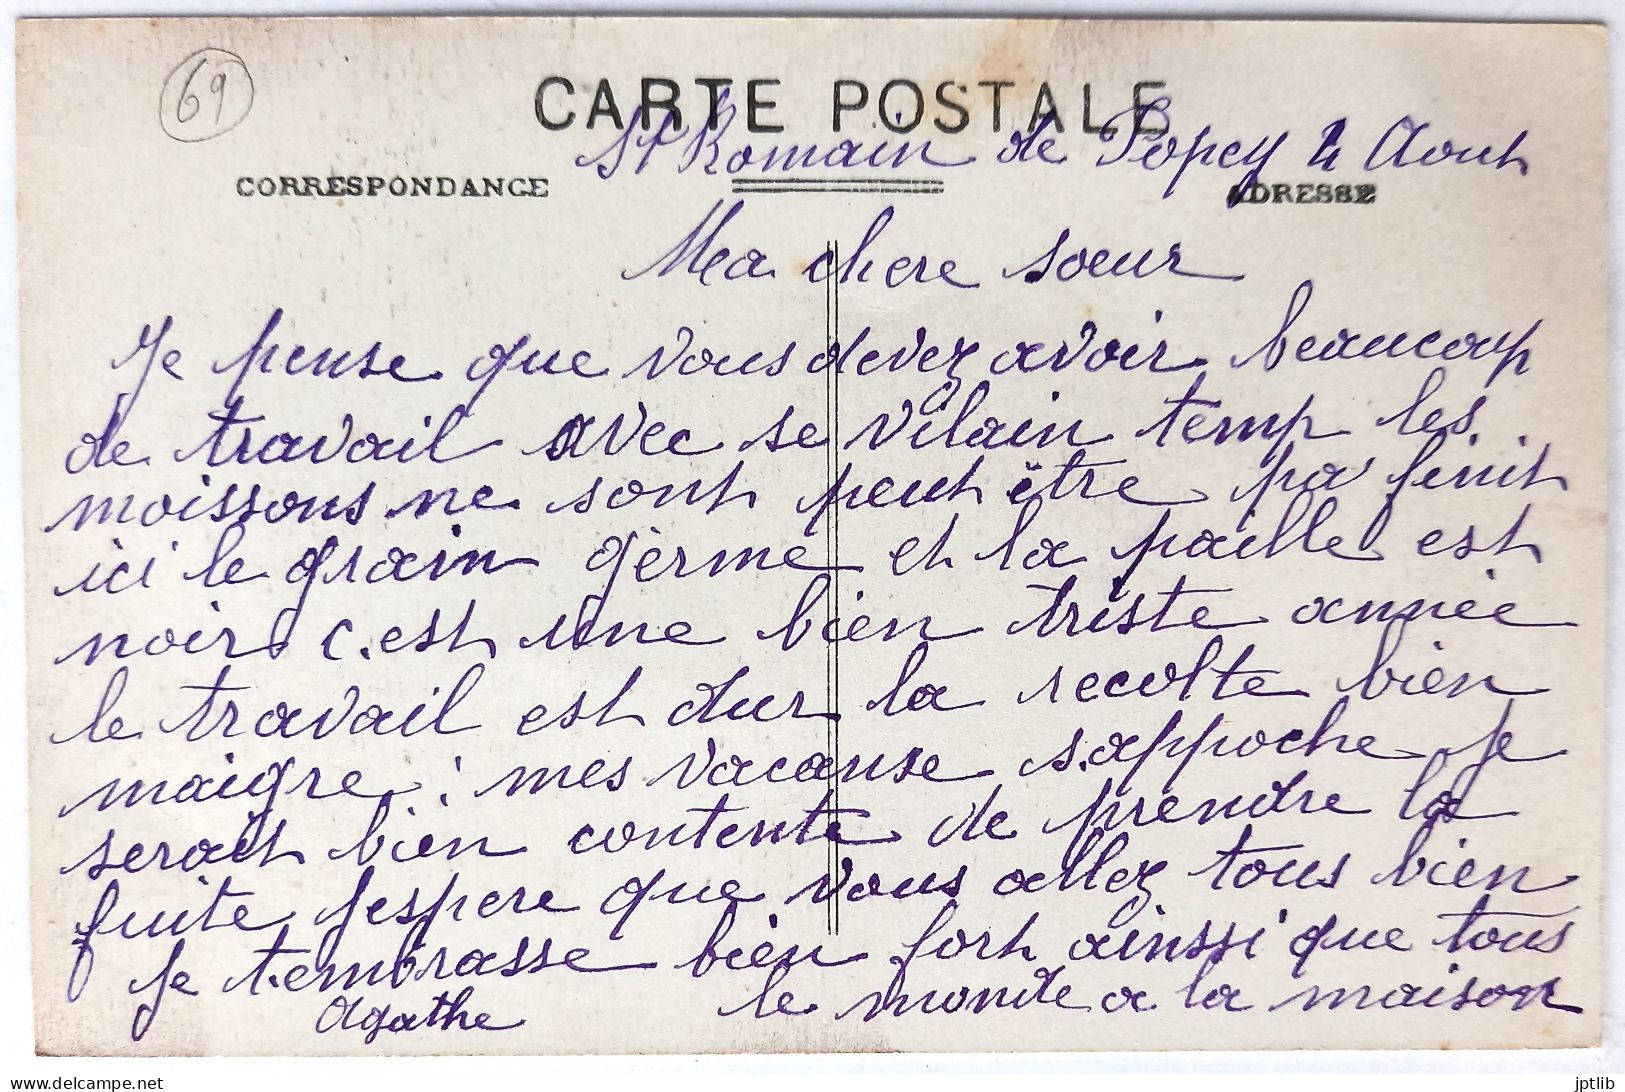 69
CARTE POSTALE
St Romain de Popey 2 Aout
CORRESPONDANCE
ADRESSE
Ma chere soeur
Je pense que vous devez avoir beaucoup
de travail avec se vilain temp les
moissons ne sont peut être pa finit
ici le grain gèrme et la paille est
noir c.est une bien triste année
le travail est dur la recolte bien
maigre : mes vacanse s.appoche je
serait bien contente de prendre la
fuite j'espere que vous allez tous bien
je t.embrasse bien fort ainssi que tous
Agathe le monde a la maison
www.delcampe.net
jptlib